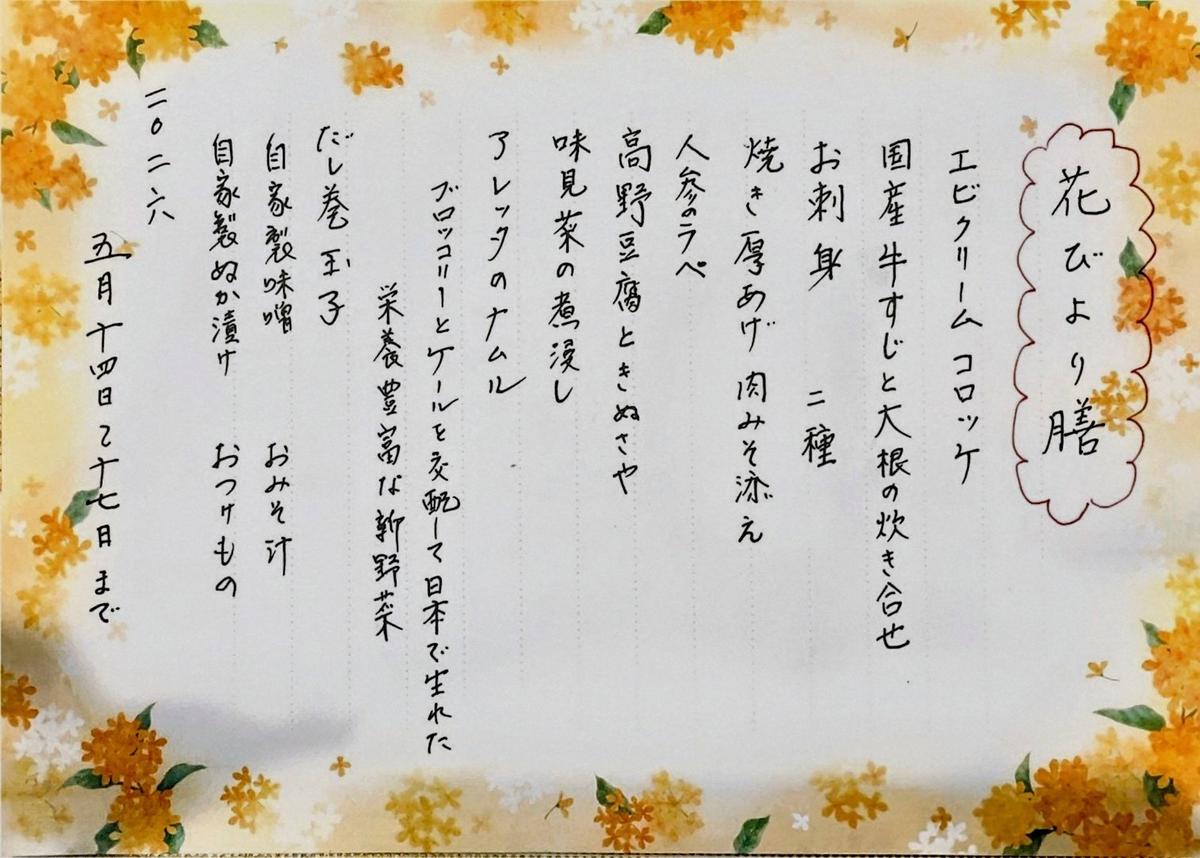 花びより膳
エビクリームコロッケ
国産牛すじと大根の炊き合せ
お刺身 二種
焼き厚あげ 肉みそ添え
人参のラペ
高野豆腐ときぬさや
味見菜の煮浸し
アレッタのナムル
ブロッコリーとケールを交配して日本で生れた
栄養豊富な新野菜
だし巻玉子
自家製味噌 おみそ汁
自家製ぬか漬け おつけもの
二〇二六
五月十四日〜十七日まで